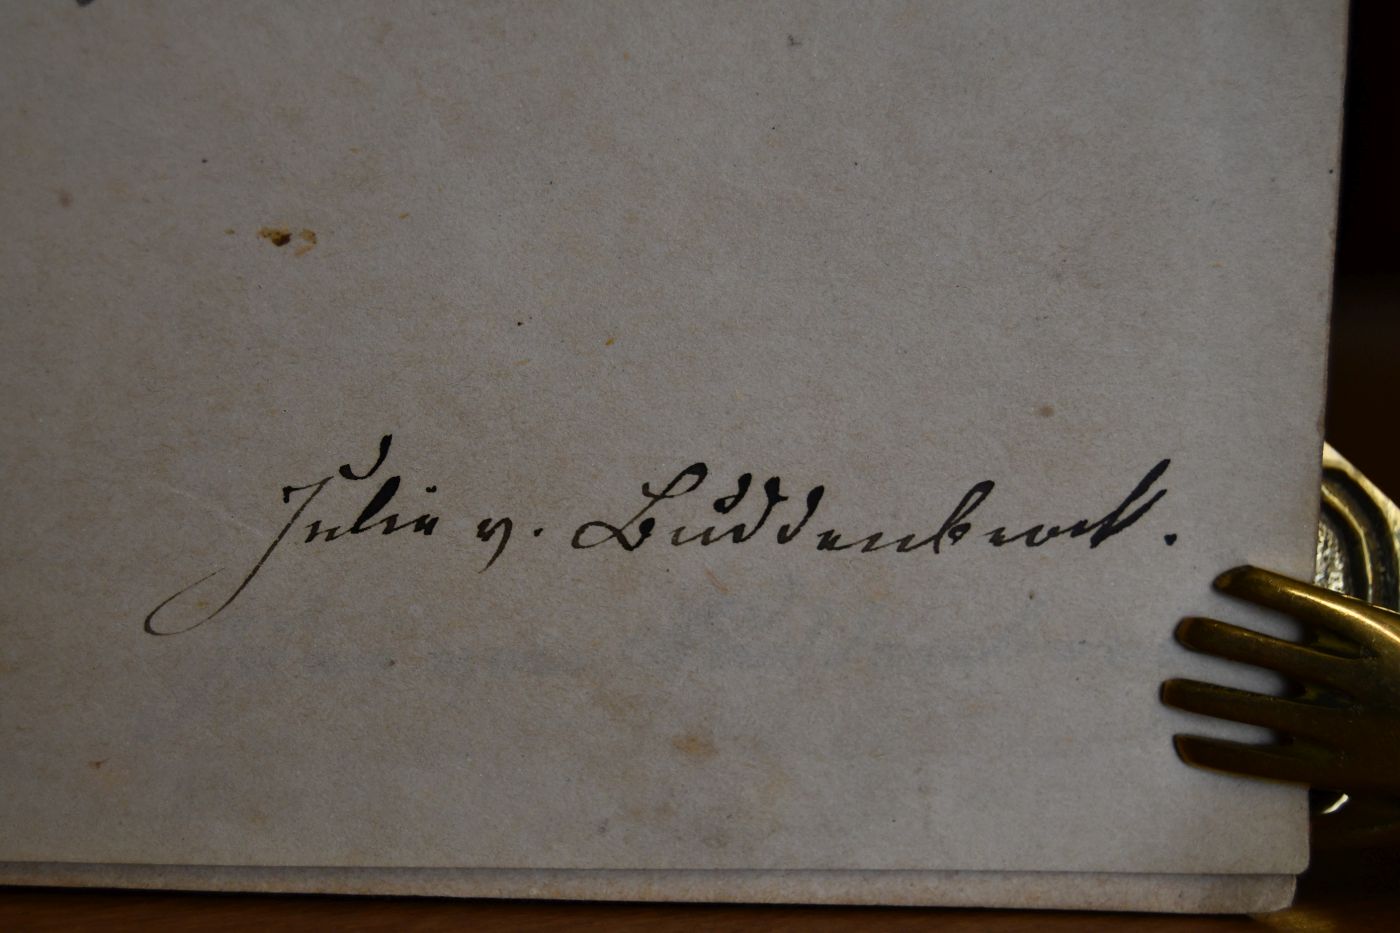 Julie v. Buddenbrock.